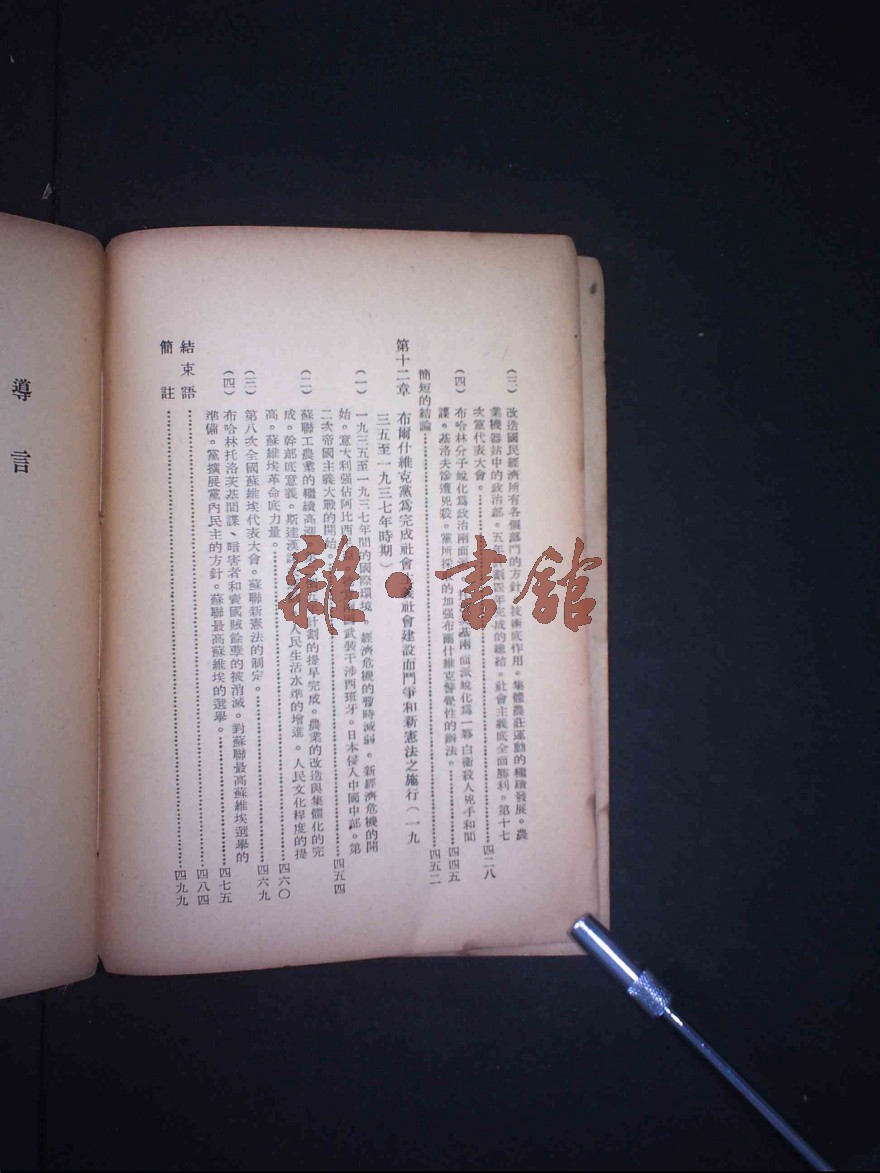 (三) 改造國民經濟所有各個部門的方針。技術底作用。集體農莊運動的繼續發展。農
業機器站中的政治部。五年計劃四年完成的總結。社會主義底全面勝利。第十七
次黨代表大會。……四二八
(四) 布哈林分子蛻化爲政治兩面派 基兩面派蛻化爲一夥白衛殺人兇手和間
諜。基洛夫慘遭兇殺。黨所採 的加强布爾什維克警覺性的辦法。……四四五
簡短的結論……四五二
第十二章 布爾什維克黨爲完成社會 義社會建設而鬥爭和新憲法之施行(一九
三五至一九三七年時期)
(一) 一九三五至一九三七年間的國際環境。經濟危機的暫時減弱。新經濟危機的開
始。意大利强佔阿比西 武裝干涉西班牙。日本侵入中國中部。第
二次帝國主義大戰的開始。……四五四
(二) 蘇聯工農業的繼續高漲。 計劃的提早完成。農業的改造與集體化的完
成。幹部底意義。斯達漢諾 人民生活水準的增進。人民文化程度的提
高。蘇維埃革命底力量。……四六〇
(三) 第八次全國蘇維埃代表大會。蘇聯新憲法的制定。……四六九
(四) 布哈林托洛茨基間諜、暗害者和賣國賊餘孽的被消滅。對蘇聯最高蘇維埃選舉的
準備。黨擴展黨內民主的方針。蘇聯最高蘇維埃的選舉。……四七五
結束語……四八四
簡註……四九九
導言
雜·書館